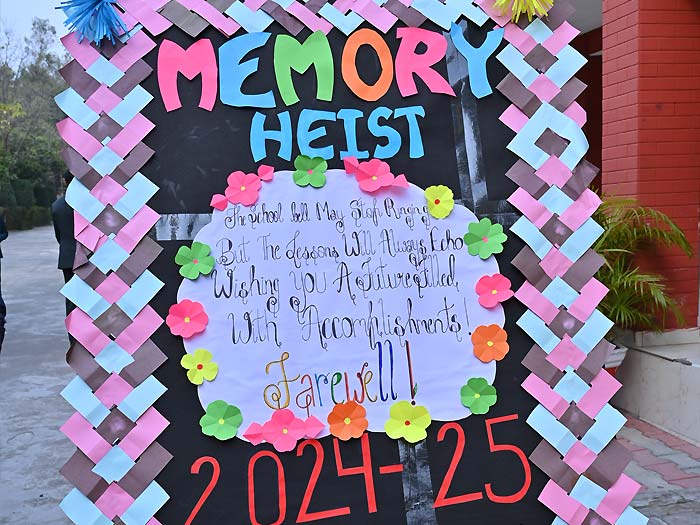 MEMORY
HEIST
The School bell May Stop Ringing
But The Lessons Will Always Echo
Wishing You A Future filled
With Accomplishments!
Farewell!
2024-25